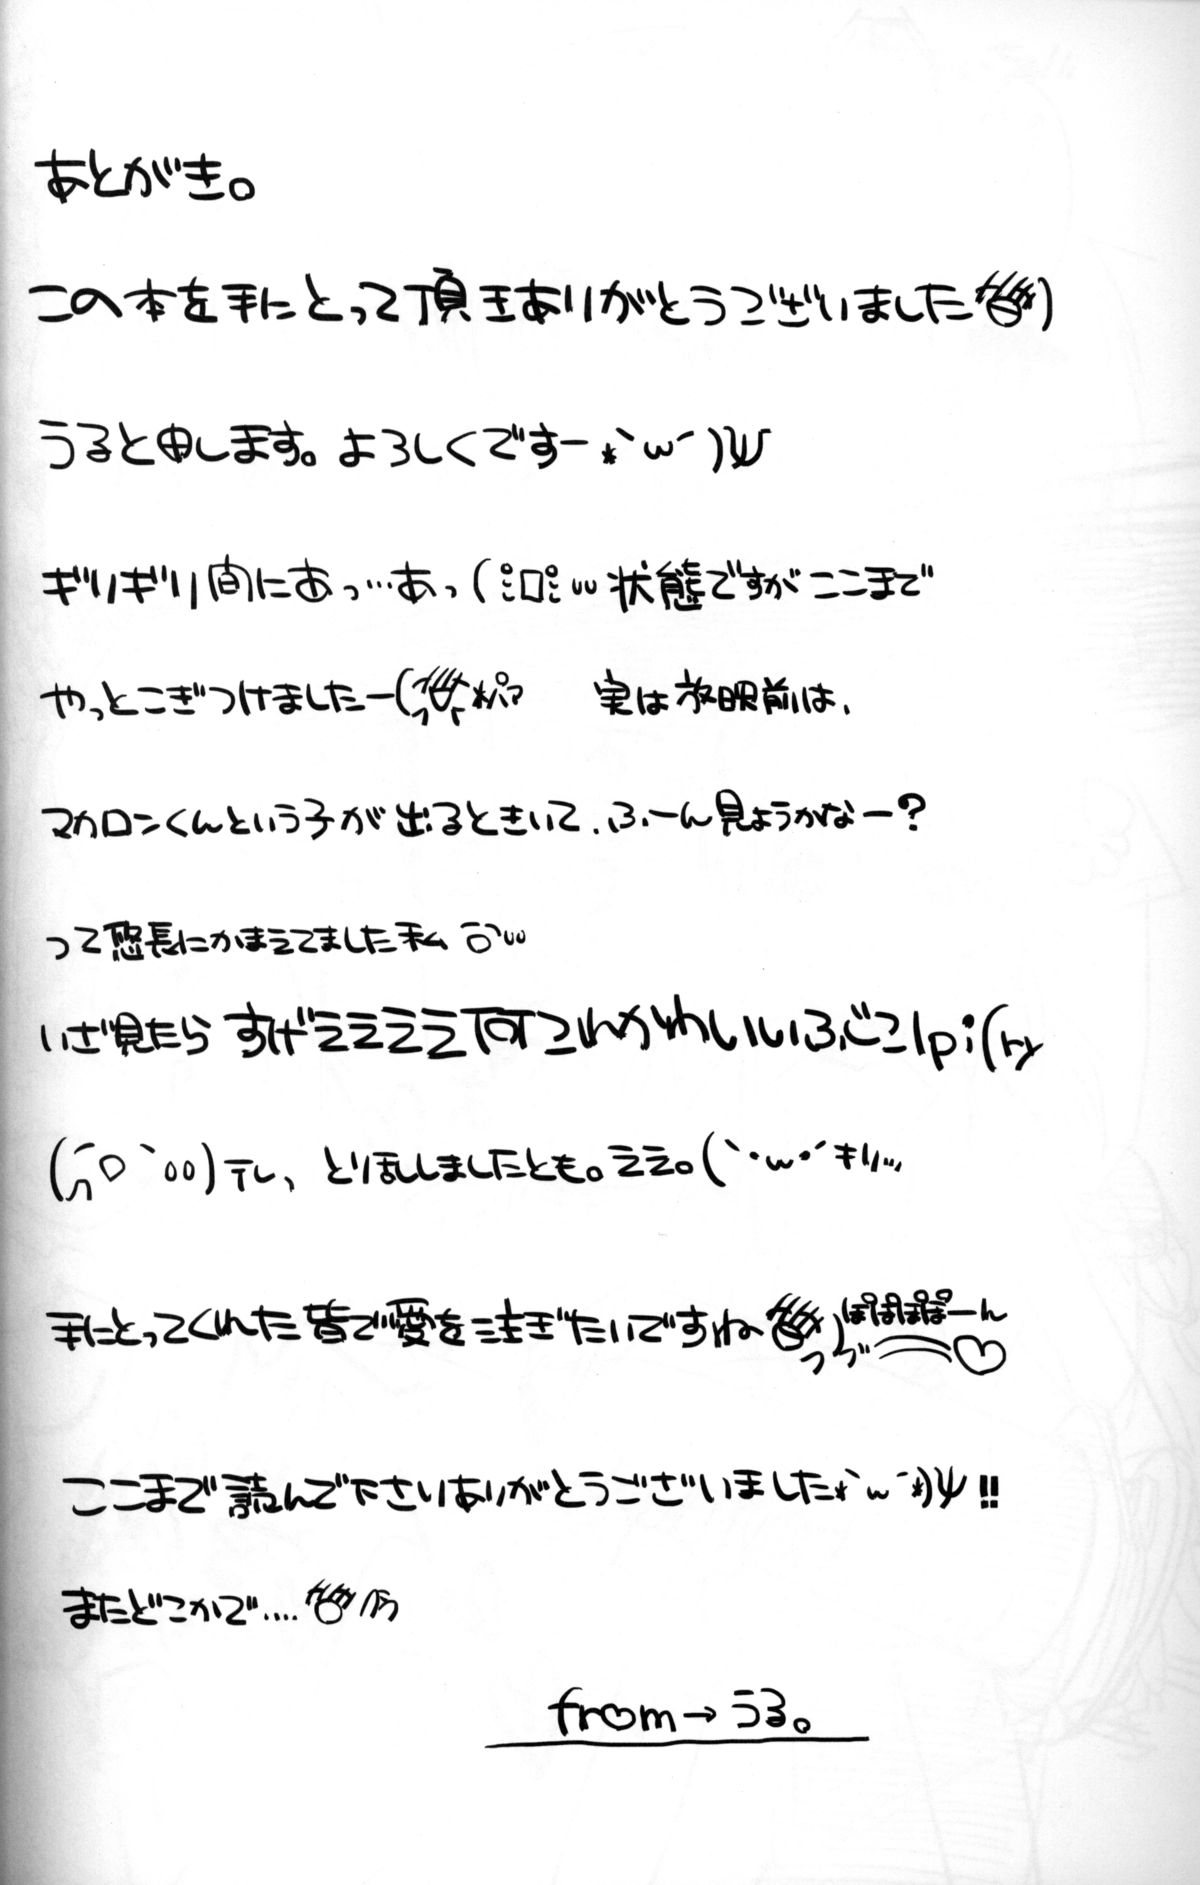 あとがき。
この本を手にとって頂きありがとうございました
うると申します。よろしくですー *｀ω´)ψ
ギリギリ間にあっ…あっ( 状態ですがここまで
やっとこぎつけましたー( 実は放映前は、
マカロンくんという子が出るときいて、ふーん見ようかなー?
って悠長にかまえてました私
いざ見たら すげェェェェ何これかわいいいふじこlpi(ry
テレ、とり乱しましたとも。ええ。(｀・ω・´キリッ…
手にとってくれた皆で愛を注ぎたいですね ぽぽぽぽーん
ここまで読んで下さりありがとうございました*｀ω´*)ψ!!
またどこかで....
from→うる。